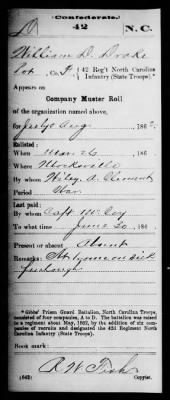 (Confederate.)
D 42 N.C.
William D. Drake
Pvt., Co. F, 42 Reg't North Carolina
Infantry (State Troops).*
Appears on
Company Muster Roll
of the organization named above,
for July & Aug, 186
Enlisted:
When Mar 26, 186
Where Mocksville
By whom Wiley A. Clement
Period War
Last paid:
By whom Capt McCoy
To what time June 30, 186
Present or absent Absent
Remarks: At home on sick
furlough
* Gibbs' Prison Guard Battalion, North Carolina Troops,
consisted of four companies, A to D. The battalion was raised
to a regiment about May, 1862, by the addition of six com-
panies of recruits and designated the 42d Regiment North
Carolina Infantry (State Troops).
Book mark:
R. W.
(642) Copyist.